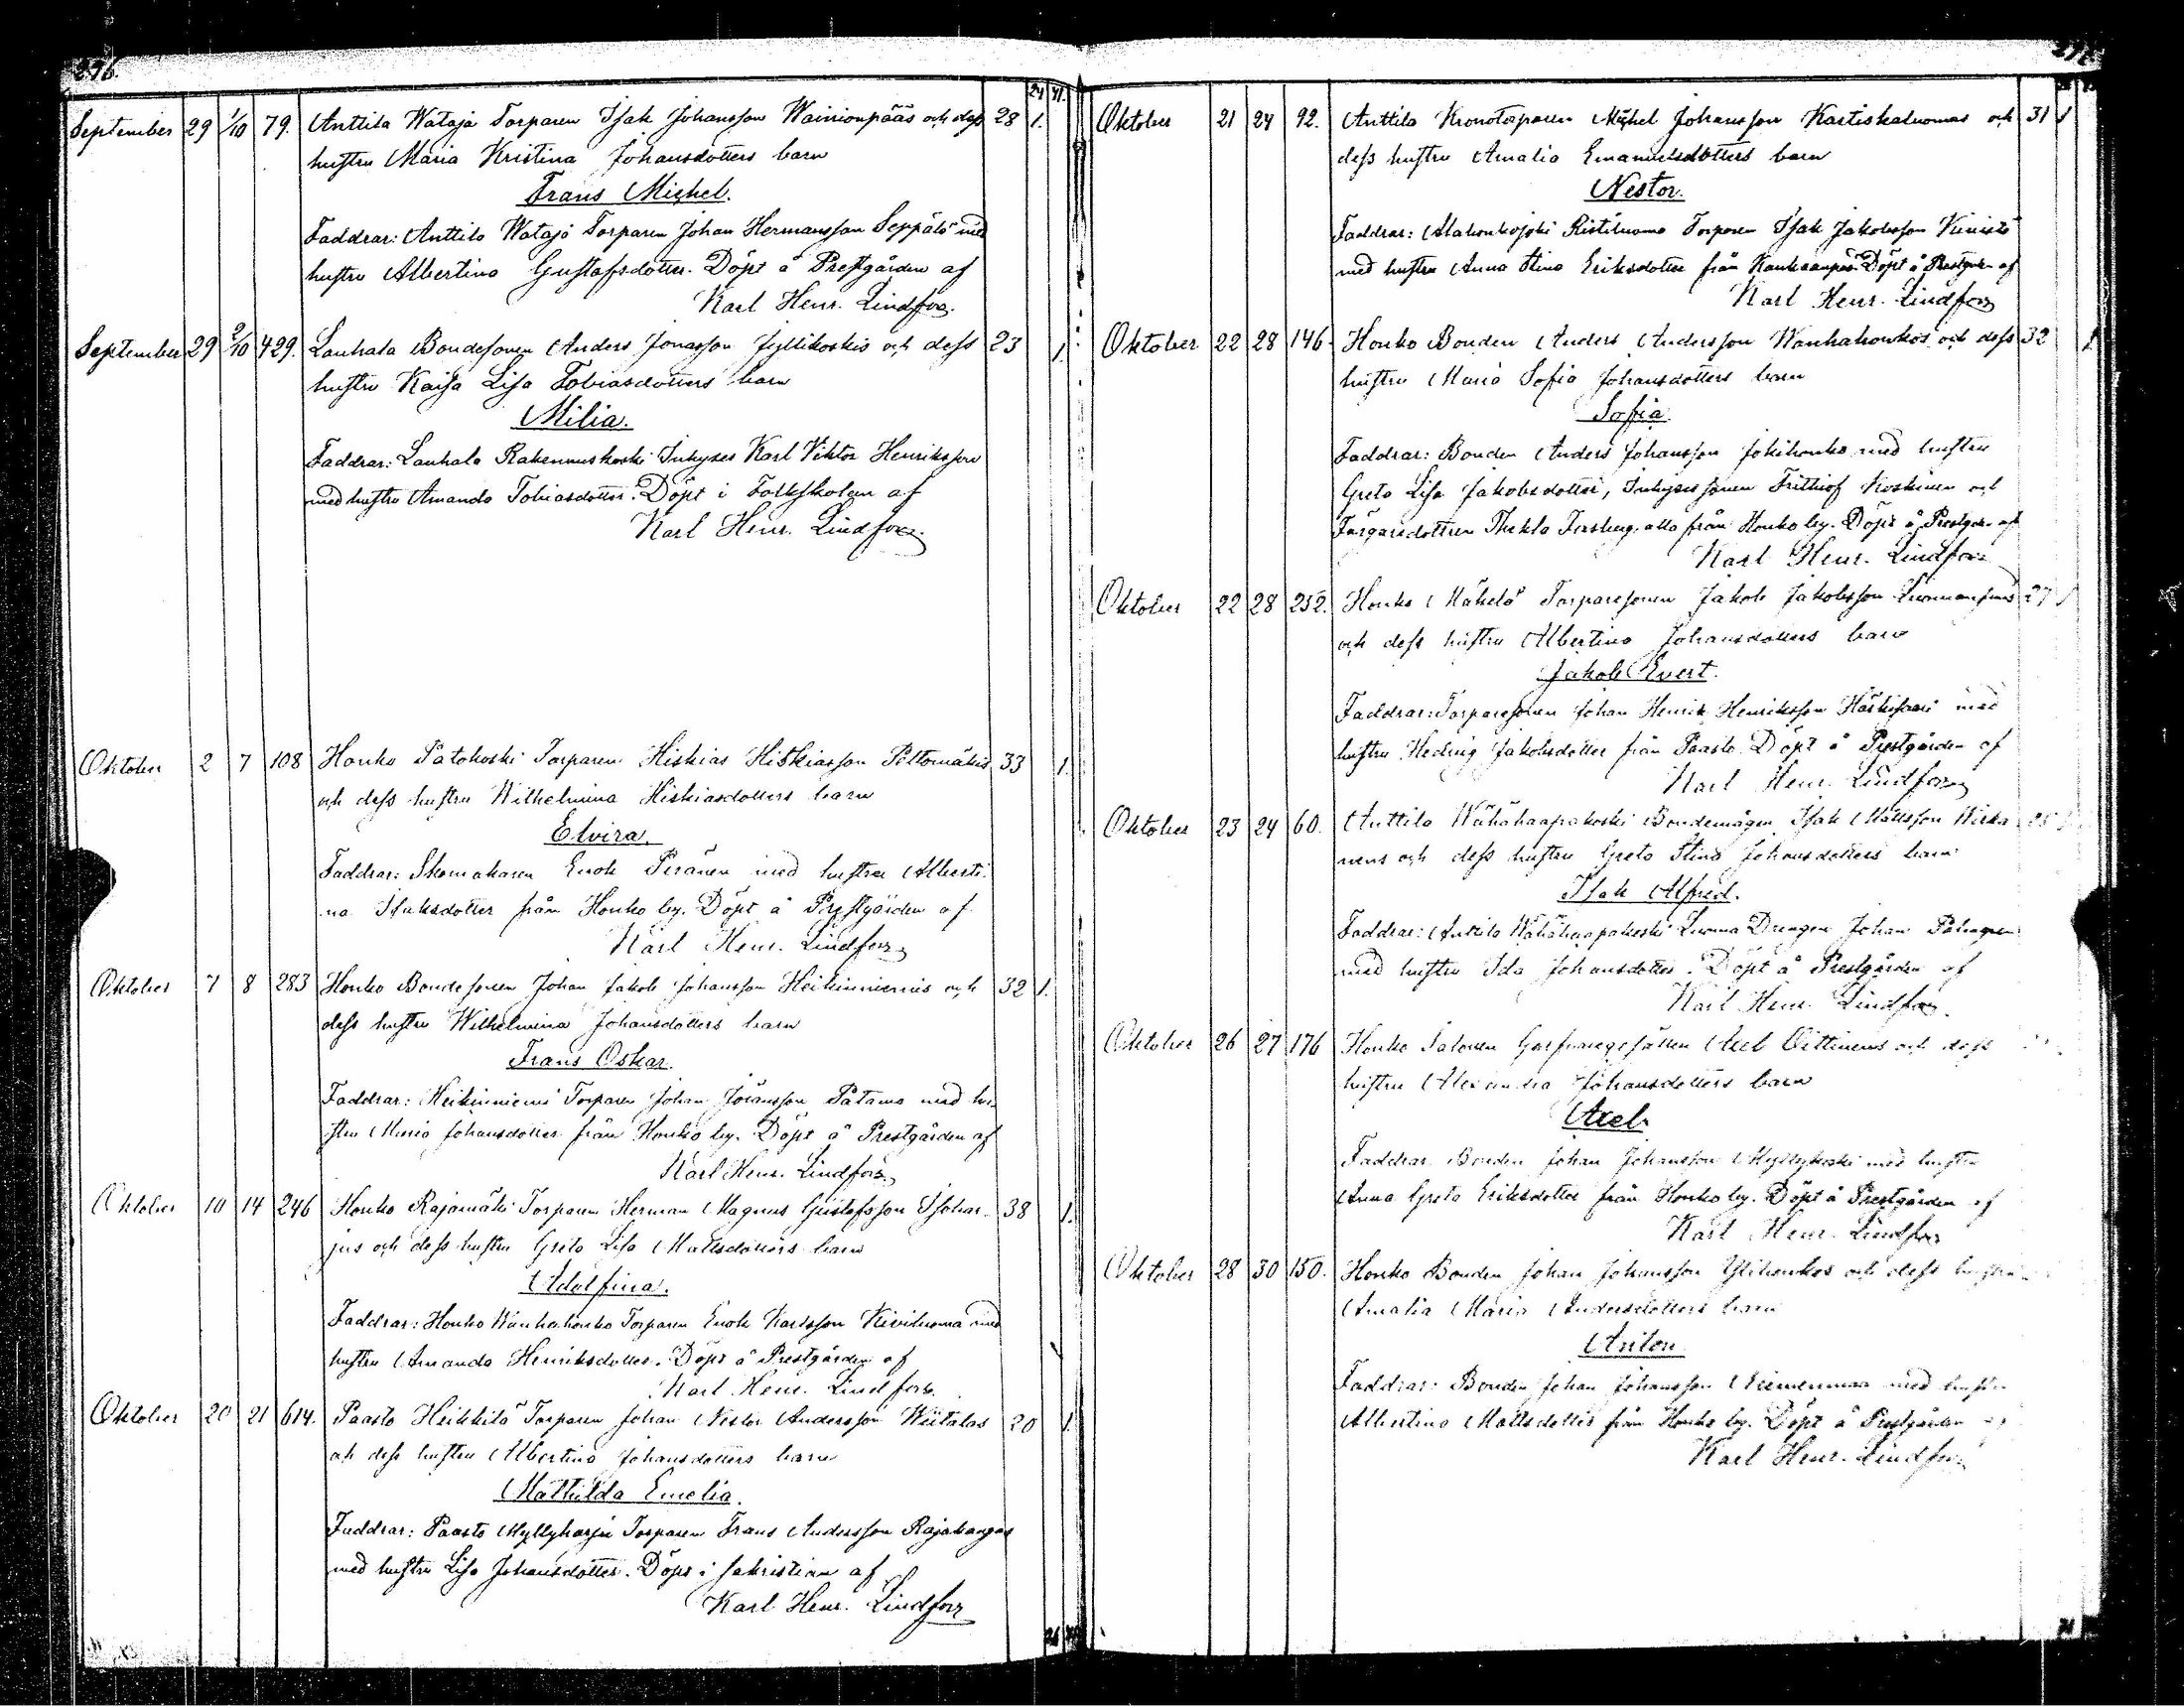 276.
24 21.
September 29 1/10 79. Anttila Wataja Torparen Isak Johansson Wainionpääs och dess 28 1.
hustru Maria Kristina Johansdotters barn
Frans Michel.
Faddrar: Anttila Wataja Torparen Johan Hermansson Seppälä med
hustru Albertina Gustafsdotter. Döpt å Prestgården af
Karl Henr. Lindfors.
September 29 2/10 429. Lauhala Bondesonen Anders Jonasson Jyllikoskis och dess 23 1.
hustru Kaisa Lisa Tobiasdotters barn
Milia.
Faddrar: Lauhala Rakennuskoski Inhyses Karl Viktor Henriksson
med hustru Amanda Tobiasdotter. Döpt i Folkskolan af
Karl Henr. Lindfors.
Oktober 2 7 108 Honko Patokoski Torparen Hiskias Hiskiasson Peltomäkis 33 1.
och dess hustru Wilhelmina Hiskiasdotters barn
Elvira.
Faddrar: Skomakaren Enok Peränen med hustru Alberti-
na Isaksdotter från Honko by. Döpt å Prestgården af
Karl Henr. Lindfors
Oktober 7 8 283 Honko Bondesonen Johan Jakob Johansson Heikinniemis och 32 1.
dess hustru Wilhelmina Johansdotters barn
Frans Oskar.
Faddrar: Heikinniemi Torparen Johan Johansson Patama med hu-
stru Maria Johansdotter från Honko by. Döpt å Prestgården af
Karl Henr. Lindfors
Oktober 10 14 246 Honko Rajamäki Torparen Herman Magnus Gustafsson Isohar- 38 1.
jus och dess hustru Greta Lisa Mattsdotters barn
Adolfina.
Faddrar: Honko Wanhahonko Torparen Enok Karlsson Kiviluoma med
hustru Amanda Henriksdotter. Döpt å Prestgården af
Karl Henr. Lindfors.
Oktober 20 21 614. Paasto Heikkilä Torparen Johan Nestor Andersson Wiitalas 20 1.
och dess hustru Albertina Johansdotters barn
Mathilda Emelia.
Faddrar: Paasto Myllyharju Torparen Frans Andersson Rajakangas
med hustru Lisa Johansdotter. Döpt i sakristian af
Karl Henr. Lindfors
Oktober 21 24 92. Anttila Kronotorparen Michel Johansson Kartiskaluomas och 31 1
dess hustru Amalia Emanuelsdotters barn
Nestor.
Faddrar: Alahonkajoki Ristiluoma Torparen Isak Jakobsson Kiviistö
med hustru Anna Stina Eriksdotter från Kankaanpää. Döpt å Prestgården af
Karl Henr. Lindfors
Oktober 22 28 146. Honko Bonden Anders Andersson Wanhahonkos och dess 32 1
hustru Maria Sofia Johansdotters barn
Sofia.
Faddrar: Bonden Anders Johansson Jokihonko med hustru
Greta Lisa Jakobsdotter, Inhysessonen Frithiof Koskinen och
Färgaredottren Thekla Forsberg, alla från Honko by. Döpt å Prestgården af
Karl Henr. Lindfors
Oktober 22 28 252. Honko Mäkelä Torparesonen Jakob Jakobsson Luomanpääs 27 1
och dess hustru Albertina Johansdotters barn
Jakob Evert.
Faddrar: Torparesonen Johan Henrik Henriksson Harkisaari med
hustru Hedvig Jakobsdotter från Paasto. Döpt å Prestgården af
Karl Henr. Lindfors
Oktober 23 24 60. Anttila Wähähaapakoski Bondemågen Isak Mattsson Wirta-
nens och dess hustru Greta Stina Johansdotters barn
Isak Alfred.
Faddrar: Anttila Wähähaapakoski Luoma Drengen Johan
med hustru Ida Johansdotter. Döpt å Prestgården af
Karl Henr. Lindfors.
Oktober 26 27 176 Honko Salonen Garfvaregesällen Axel Oittinens och dess
hustru Alexandra Johansdotters barn
Axel.
Faddrar: Bonden Johan Johansson Myllykoski med hustru
Anna Greta Eriksdotter från Honko by. Döpt å Prestgården af
Karl Henr. Lindfors
Oktober 28 30 150. Honko Bonden Johan Johansson Ylihonkos och dess hustru
Amalia Maria Andersdotters barn
Anton.
Faddrar: Bonden Johan Johansson Niemenmaa med hustru
Albertina Mattsdotter från Honko by. Döpt å Prestgården af
Karl Henr. Lindfors